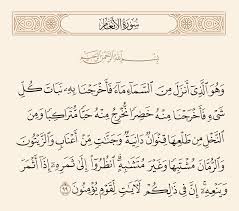 سُورَةُ الأَنْعَامِ
بِسْمِ اللَّهِ الرَّحْمَٰنِ الرَّحِيمِ
وَهُوَ الَّذِي أَنزَلَ مِنَ السَّمَاءِ مَاءً فَأَخْرَجْنَا بِهِ نَبَاتَ كُلِّ
شَيْءٍ فَأَخْرَجْنَا مِنْهُ خَضِرًا نُّخْرِجُ مِنْهُ حَبًّا مُّتَرَاكِبًا وَمِنَ
النَّخْلِ مِن طَلْعِهَا قِنْوَانٌ دَانِيَةٌ وَجَنَّاتٍ مِّنْ أَعْنَابٍ وَالزَّيْتُونَ
وَالرُّمَّانَ مُشْتَبِهًا وَغَيْرَ مُتَشَابِهٍ ۗ انظُرُوا إِلَىٰ ثَمَرِهِ إِذَا أَثْمَرَ
وَيَنْعِهِ ۚ إِنَّ فِي ذَٰلِكُمْ لَآيَاتٍ لِّقَوْمٍ يُؤْمِنُونَ ٩٩